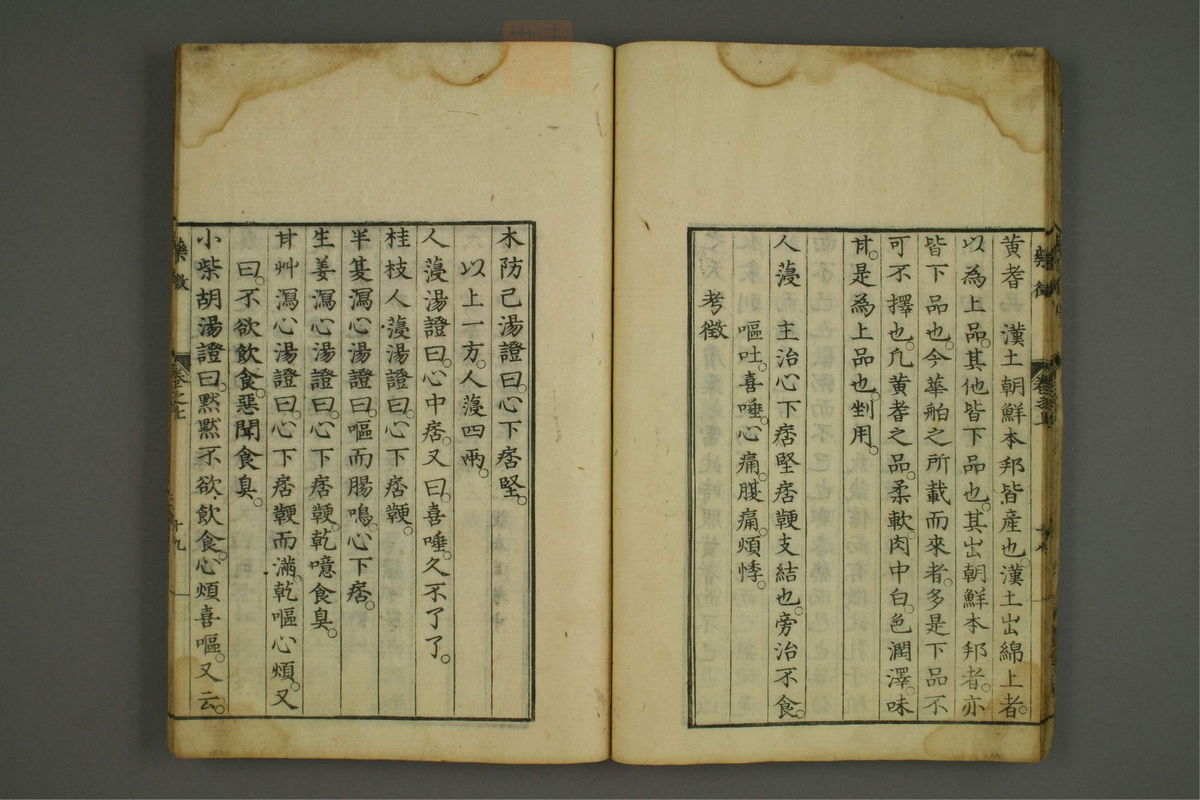 黄耆 漢土朝鮮本邦皆産也。漢土出綿上者。
以為上品。其他皆下品也。其出朝鮮本邦者。亦
皆下品也。今華舶之所載而來者。多是下品不
可不擇也。凢黄耆之品。柔軟。肉中白。色潤澤。味
甘。是為上品也。剉用。
人薓 主治心下痞堅痞鞕支結也。旁治不食。
嘔吐。喜唾。心痛。腹痛。煩悸。
考徴
藥徴
卷之上
木防己湯證曰。心下痞堅。
以上一方。人薓四兩。
人薓湯證曰。心中痞。又曰。喜唾。久不了了。
桂枝人薓湯證曰。心下痞鞕。
半夏瀉心湯證曰。嘔而腸鳴。心下痞。
生姜瀉心湯證曰。心下痞鞕。乾噫食臭。
甘艸瀉心湯證曰。心下痞鞕而滿。乾嘔心煩。又
曰。不欲飲食。惡聞食臭。
小柴胡湯證曰。黙黙不欲飲食。心煩喜嘔。又云。
藥徴
卷之上
十九